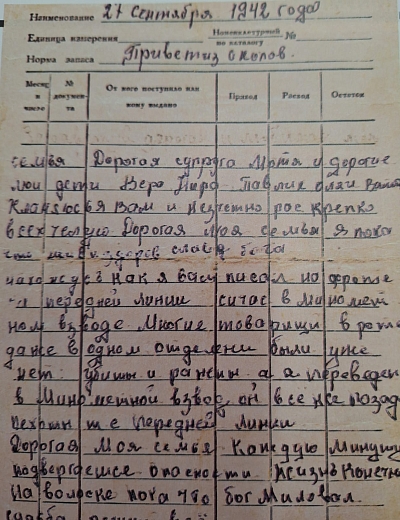 Наименование 27 Сентября 1942 года
Единица измерения Номенклатурный по каталогу №
Норма запаса Привет из окопов.
Месяц и число № докумен-та От кого поступило или кому выдано Приход Расход Остаток
семья Дорогая супруга Мотя и дорогие
мои дети Вера Нюра Павлик Оля и Ваня
Кланяюсь я Вам и несчетно рас крепко
всех целую Дорогая моя семья я пока
здоров слава бога
нахожусь как я вам писал на фронте
на передней линии сичас в миномет
ном взводе Многие товарищи в роте
даже в одном отделени были уже
нет убиты и ранены а я переведен
в минометный взвод он все же позад
пехоты т е передней линии
Дорогая моя семья Каждую минуту
подвергаешся опасности жизнь
на волоске пока что бог миловал.
судьба